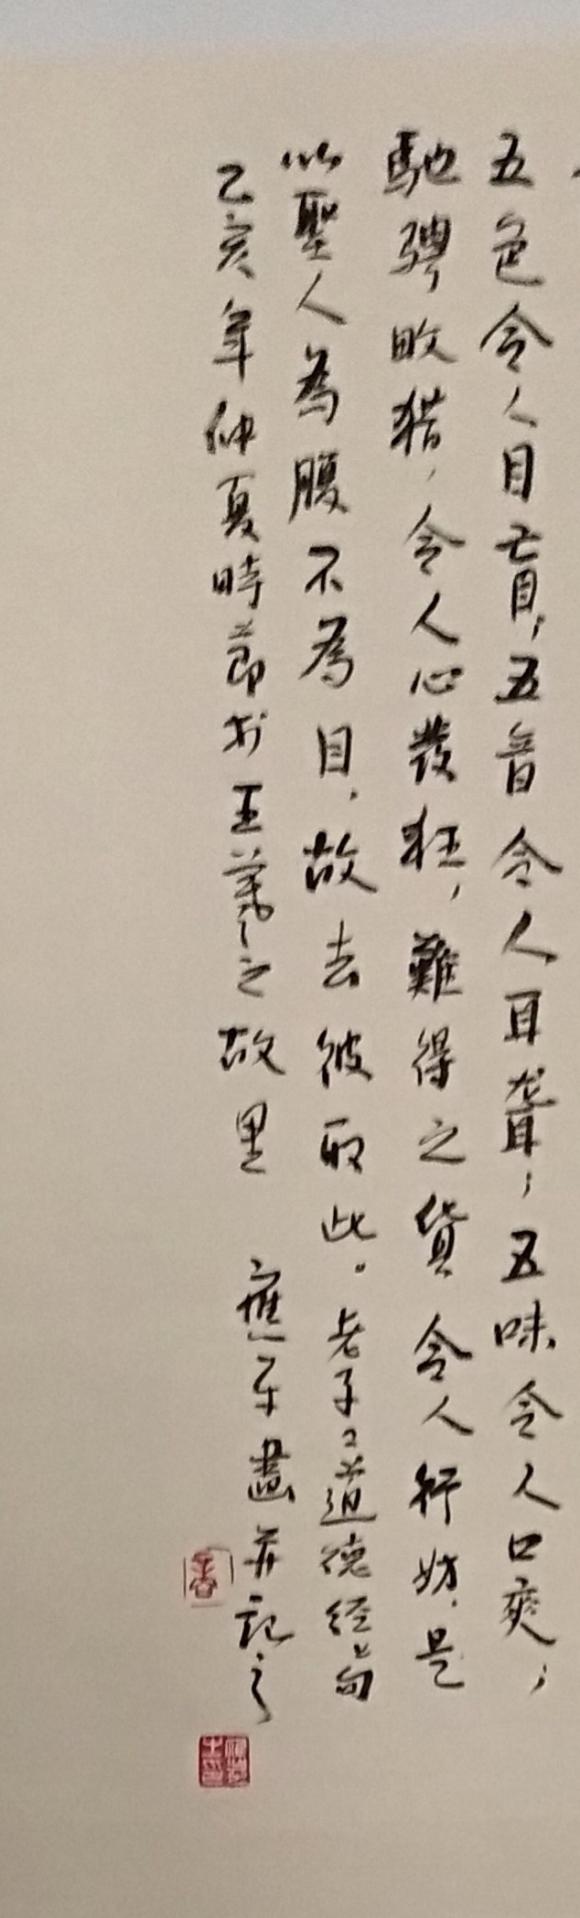 五色令人目盲，五音令人耳聾，五味令人口爽，
馳騁畋猎，令人心發狂，難得之貨令人行妨，是
以聖人為腹不為目，故去彼取此。老子道德经句
乙亥年仲夏時節於王羲之故里 平畫并記之